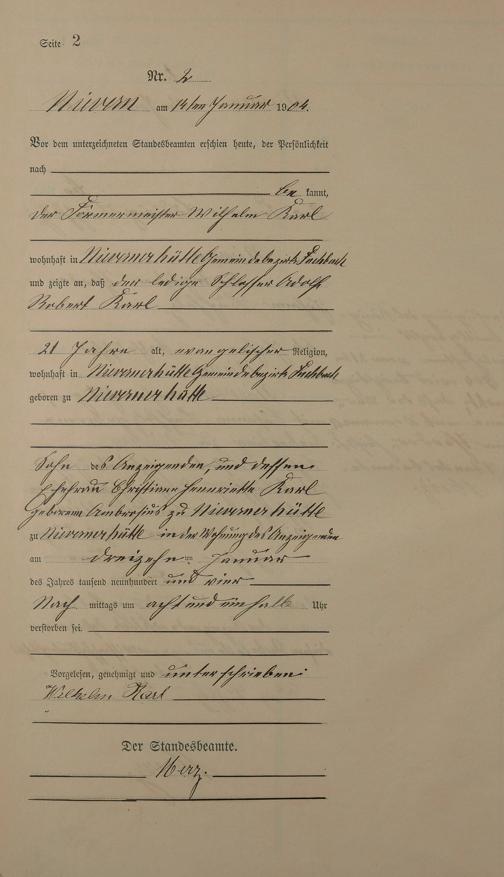 Seite 2
Nr. 2
Nievern am 14ten Januar 1904.
Vor dem unterzeichneten Standesbeamten erschien heute, der Persönlichkeit
nach
be kannt,
der Formermeister Wilhelm Karl
wohnhaft in Nievernerhütte Gemeindebezirk Fachbach
und zeigte an, daß der ledige Schlosser Adolf
Robert Karl
21 Jahre alt, evangelischer Religion,
wohnhaft in Nievernerhütte Gemeindebezirk Fachbach
geboren zu Nievernerhütte
Sohn des Anzeigenden, und dessen
Ehefrau Christiane Henriette Karl
geborene Ambrosius zu Nievernerhütte
zu Nievernerhütte in der Wohnung des Anzeigenden
am dreizehn ten Januar
des Jahres tausend neunhundert und vier
Nach mittags um acht und ein halb Uhr
verstorben sei.
Vorgelesen, genehmigt und unterschrieben:
Wilhelm Karl
Der Standesbeamte.
Merz.